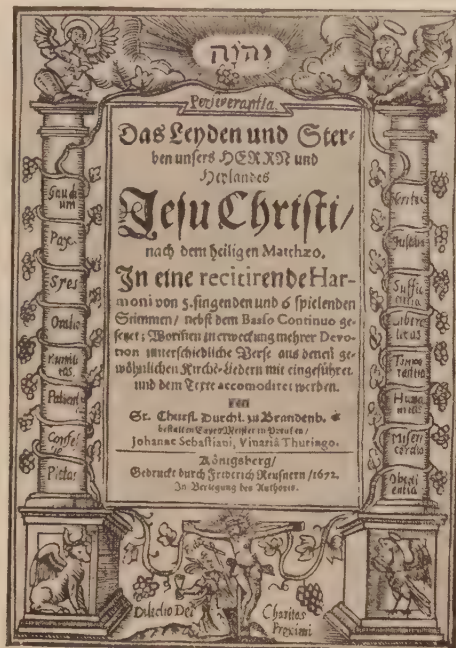 יהוה
Perseverantia
Das Leyden und Ster-
ben unsers HERRN und
Heylandes
Jesu Christi/
nach dem heiligen Matthæo.
In eine recitirende Har-
moni von 5. singenden und 6 spielenden
Stimmen/ nebst dem Basso Continuo ge-
setzet; Worinnen zu erweckung mehrer Devo-
tion unterschiedliche Verse aus denen ge-
wöhnlichen Kirche-Liedern mit eingeführet
und dem Texte accomodiret werden.
von
Sr. Churfl. Durchl. zu Brandenb.
bestalten Capel-Meister in Preussen/
Johanne Sebastiani, Vinariâ Thuringo.
Königsberg/
Gedruckt durch Friderich Reusnern/ 1672.
In Verlegung des Authoris.
Gaudi
um
Pax
Spes
Oratio
Patient
Confes
sio
Pietas
Veritas
Justitia
Suffic
ientia
Libera
litas
Tempe
rantia
Huma
nitas
Miseri
cordia
Obedi
entia
Dilectio Dei
Charitas
Proximi